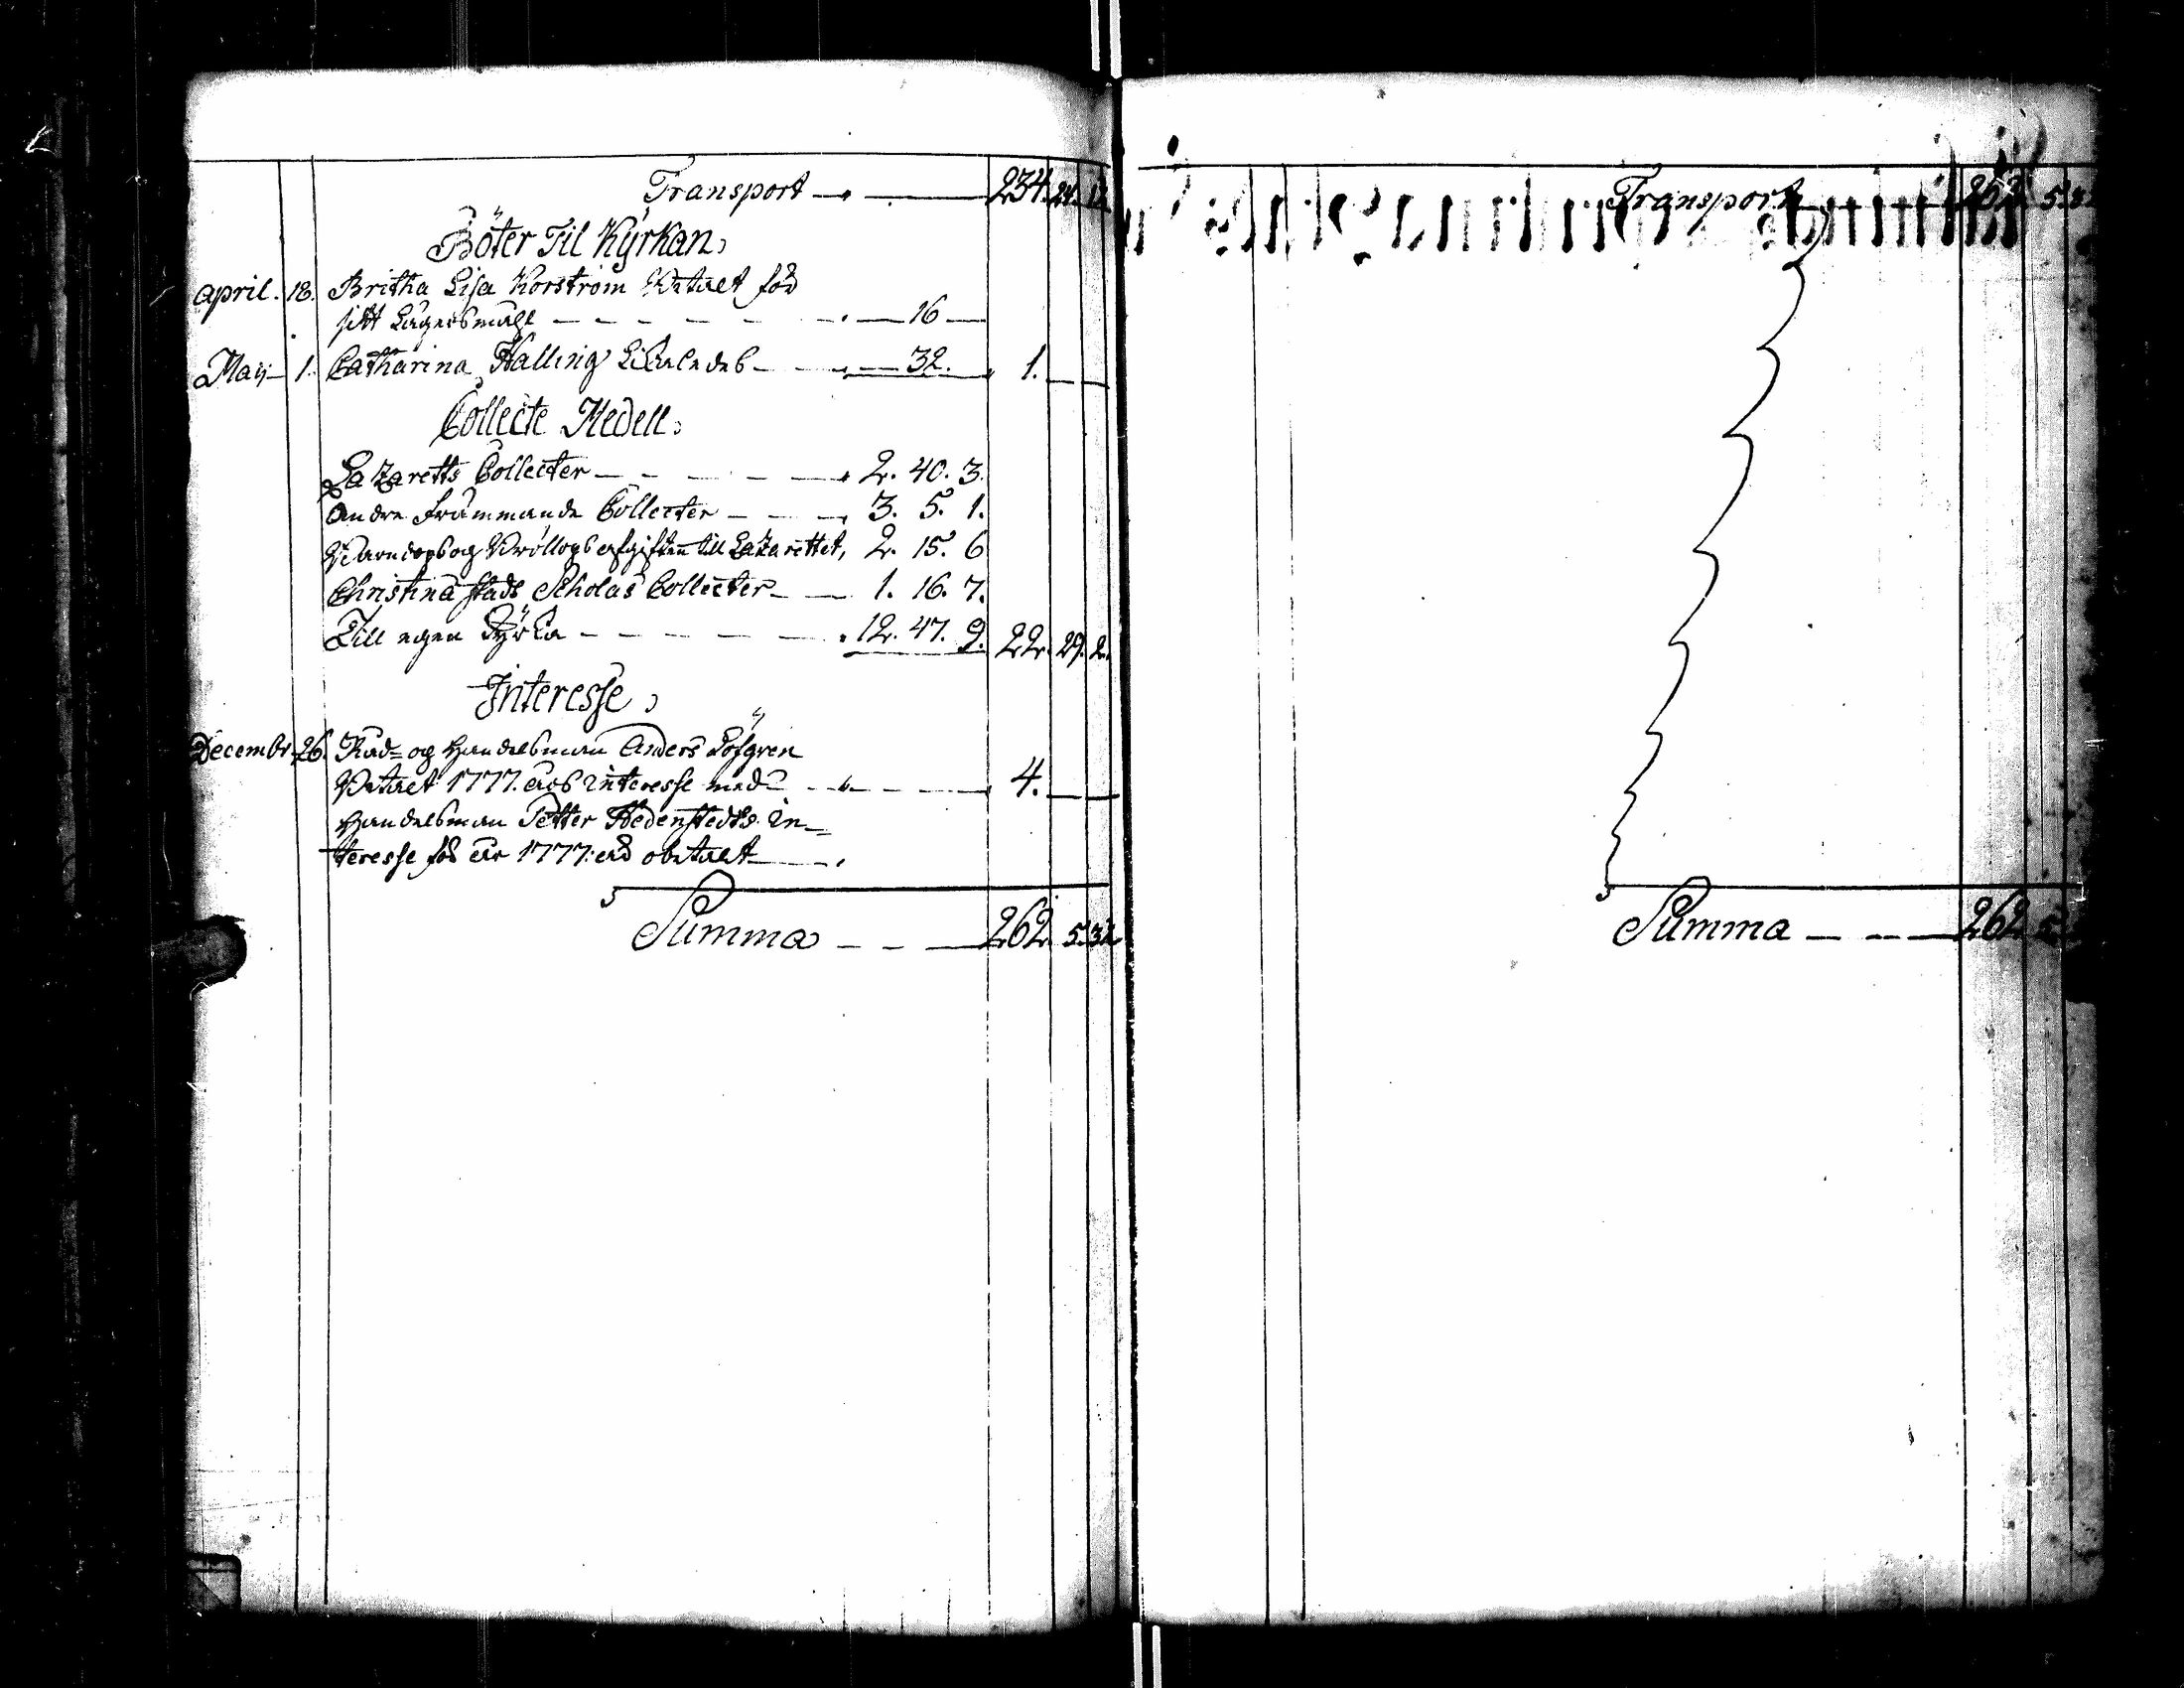 Transport — 234. 24. 1½
Böter Til Kyrkan,
April. 18. Britha Lisa Korström betalt för
sitt Lägersmåhl — 16 —
Maij 1. Catharina Halling likaledes — 32. 1.
Collecte Medell,
Lazaretts Collecter — 2. 40. 3.
Andre främmande Collecter — 3. 5. 1.
Barndops og Bröllops afgiften till Lazarettet, 2. 15. 6
Christinæ stads Scholas Collecter — 1. 16. 7.
Till egen Kyrka — 12. 47. 9. 22. 29. 2.
Interesse,
Decembr. 26. Råd- og Handelsman Anders Löfgren
betalt 1777. års interesse med — 4.
Handelsman Petter Hedenstedts in-
teresse för år 1777: är obetalt
Summa — 262. 5. 3½
Transport 262. 5.
Summa — 262. 5